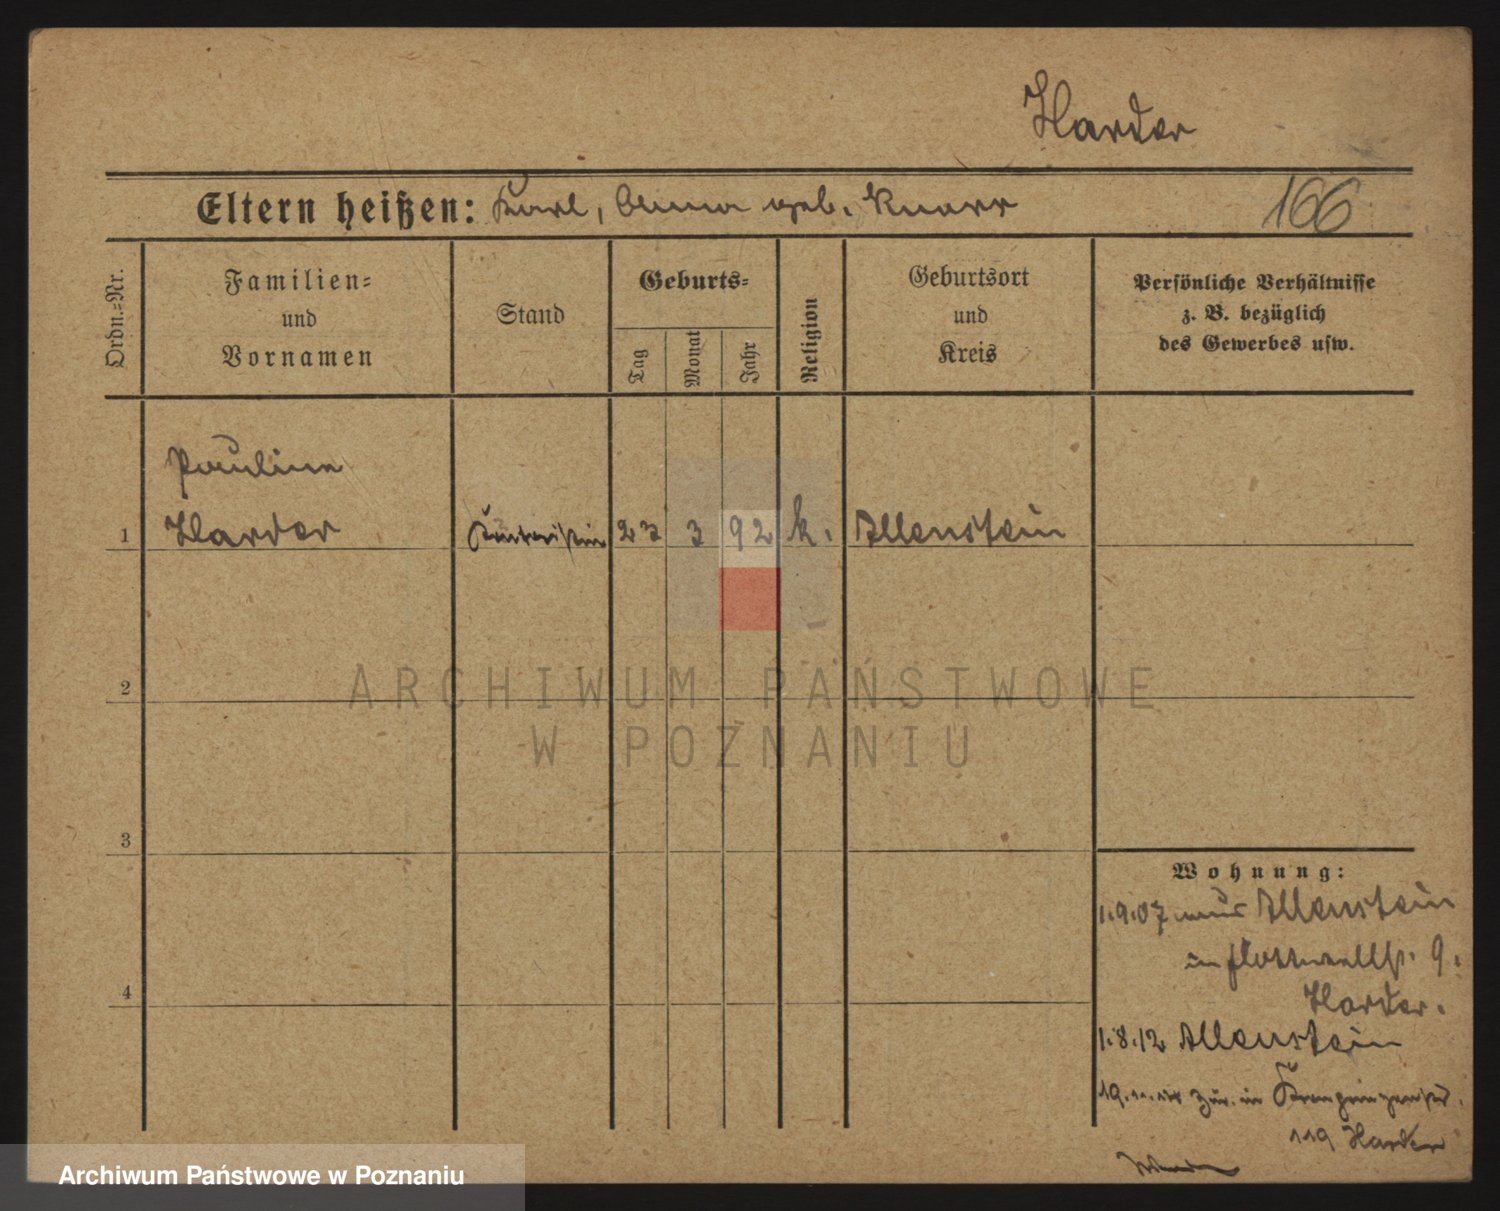 Harder
Eltern heißen: Karl, Anna geb. Knorr
166
Ordn.-Nr.
Familien-
und
Vornamen
Stand
Geburts-
Tag
Monat
Jahr
Religion
Geburtsort
und
Kreis
Persönliche Verhältnisse
z. B. bezüglich
des Gewerbes usw.
Pauline
1 Harder 23 3 92 k. Allenstein
2
3
4
ARCHIWUM PAŃSTWOWE
W POZNANIU
Wohnung:
1.9.07 aus Allenstein
in Flottwellstr. 9.
Harder.
1.8.12 Allenstein
zur. in Kronprinzenstr.
119 Harder
Archiwum Państwowe w Poznaniu